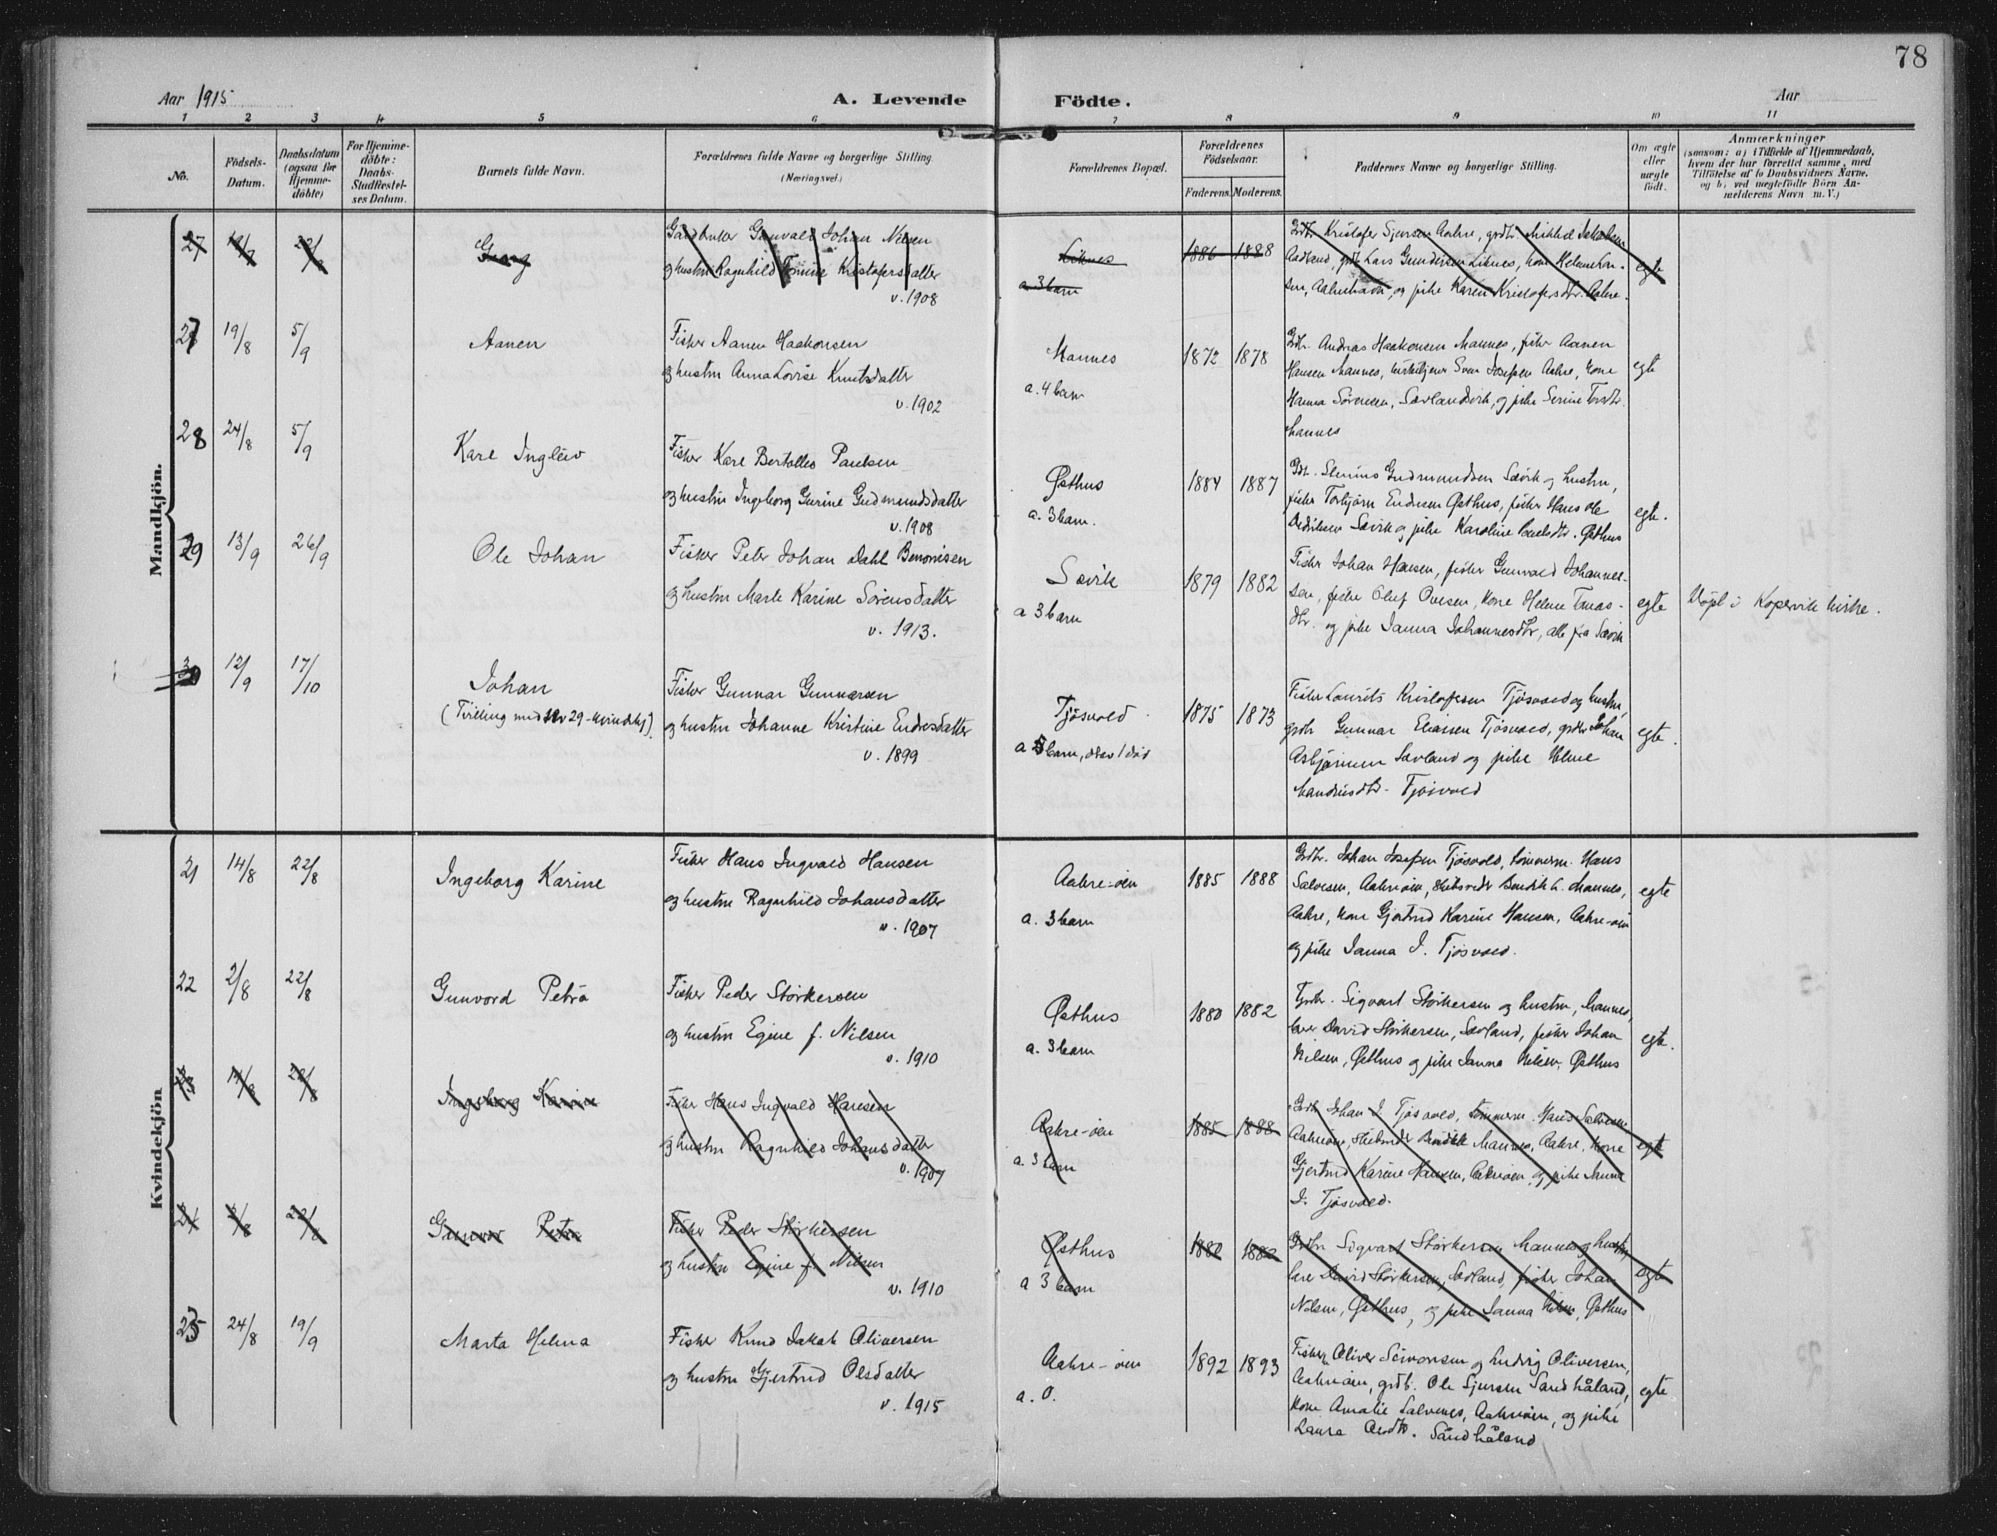 78
Aar 1915
A. Levende
Födte.
Aar
1 2 3 4 5 6 7 8 9 10 11
No.
Födsels-
Datum.
Daabsdatum
(ogsaa for
Hjemme-
döbte)
For Hjemme-
döbte:
Daabs-
Stadfæstel-
ses Datum.
Barnets fulde Navn.
Forældrenes fulde Navne og borgerlige Stilling.
(Næringsvei.)
Forældrenes Bopæl.
Forældrenes
Födselsaar.
Faderens.
Moderens.
Faddernes Navne og borgerlige Stilling.
Om ægte
eller
uægte
født.
Anmærkninger
(saasom: a) i Tilfælde af Hjemmedaab,
hvem der har forrettet samme, med
Tilföielse af to Daabsvidners Navne,
og b) ved uægtefödte Börn An-
melderens Navn m. V.)
Mandkjön.
27
Georg
Gaardbruker Gunvald Johan Nilsen
og hustru Ragnhild Tomine Kristofersdatter
v. 1908
Liknes
a. 3 barn
1886 1888
Gdbr. Kristofer Sjursen Aakre, grdbr. Mikkel Jakobsen
Aadland, grdb. Lars Gundersen Liknes, kone Helene Lar-
sen, Aakrehavn, og pike Karen Kristofersdtr. Aakre.
egte
27 19/8 5/9
Aanen
Fisker Aanen Haakonsen
og hustru Anna Lovise Knutsdatter
v. 1902
Mannes
a. 4 barn
1872 1878
Gdbr. Andreas Haakonsen Mannes, fisker Aanen
Hansen Mannes, kirketjener Sven Josefsen Aakre, kone
Hanna Sörensen, Sævlandsvik, og pike Serine
Mannes
egte
28 24/8 5/9
Karl Ingleiv
Fisker Karl Bertolles Paulsen
og hustru Ingeborg Gurine Gudmundsdatter
v. 1908
Østhus
a. 3 barn.
1884 1887
Gdbr. Gudmundsen Sævik og hustru,
fisker Torbjørn Endresen Østhus, fisker Hans Ole
Sævik og pike Karoline Østhus
egte.
29 13/9 26/9
Ole Johan
Fisker Peter Johan Dahl Benonisen
og hustru Marte Karine Sörensdatter
v. 1913.
Sævik
a 3 barn
1879 1882
Fisker Johan Hansen, fisker Gunvald Johannes-
sen, fisker Olaf Ovesen, kone Helene Tomas-
dtr. og pike Janna Johannesdtr, alle fra Sævik
egte
Döpt i Kopervik kirke.
30 12/9 17/10
Johan
(Tvilling med No 29 - kvindekj.)
Fisker Gunnar Gunnarsen
og hustru Johanne Kristine Endresdatter
v. 1899
Tjösvold
a 8 barn, derav 1 död
1875 1873
Fisker Laurits Kristofersen Tjösvold og hustru,
grdbr Gunnar Eliassen Tjösvold, grdbr Johan
Asbjörnsen Sævland og pike Helene
Tjösvold
egte.
Kvindekjön
21 14/8 22/8
Ingeborg Karine
Fisker Hans Ingvald Hansen
og hustru Ragnhild Johansdatter
v. 1907
Aakre-öen
a. 3 barn
1885 1888
Grdbr. Johan Josefsen Tjösvold, tömmerm. Hans
Salvesen, Aakreöen, skibsreder Bendik L. Mannes,
Aakre, kone Gjertrud Karine Hansen, Aakre-öen
og pike Janna J. Tjösvold.
egte
22 2/8 22/8
Gunvord Petra
Fisker Peder Störkersen
og hustru Egine f. Nilsen
v. 1910
Østhus
a. 3 barn
1880 1882
Grdbr. Sigvart Störkersen og hustru, Mannes,
lærer David Störkersen, Sævland, fisker Johan
Nilsen, Østhus og pike Janna Nilsen, Østhus
egte.
23 14/8 22/8
Ingeborg Karine
Fisker Hans Ingvald Hansen
og hustru Ragnhild Johansdatter
v. 1907
Aakre-öen
a. 3 barn
1885 1888
Grdb. Johan J. Tjösvold, tömmerm. Hans Salvesen
Aakreöen, skibsreder Bendik Mannes, Aakre, kone
Gjertrud Karine Hansen, Aakreöen, og pike Janna
J. Tjösvold.
egte
24 2/8 22/8
Gunvor Petra
Fisker Peder Störkersen
og hustru Egine f. Nilsen
v. 1910
Østhus
a 3 barn
1880 1882
Grdbr Sigvart Störkersen Mannes og hustru,
lærer David Störkersen, Sævland, fisker Johan
Nilsen, Østhus, og pike Janna Nilsen, Østhus
egte
25 24/8 19/9
Marta Helma
Fisker Knud Jakob Oliversen
og hustru Gjertrud Olsdatter
v. 1915
Aakre-öen
a. 0.
1892 1893
Fiskere Oliver Simonsen og Ludvig Oliversen,
Aakreöen, grdb. Ole Sjursen Sandhåland,
kone Amalie Salvesen, Aakreöen, og pike
Laura Olsdtr. Sandhåland
egte